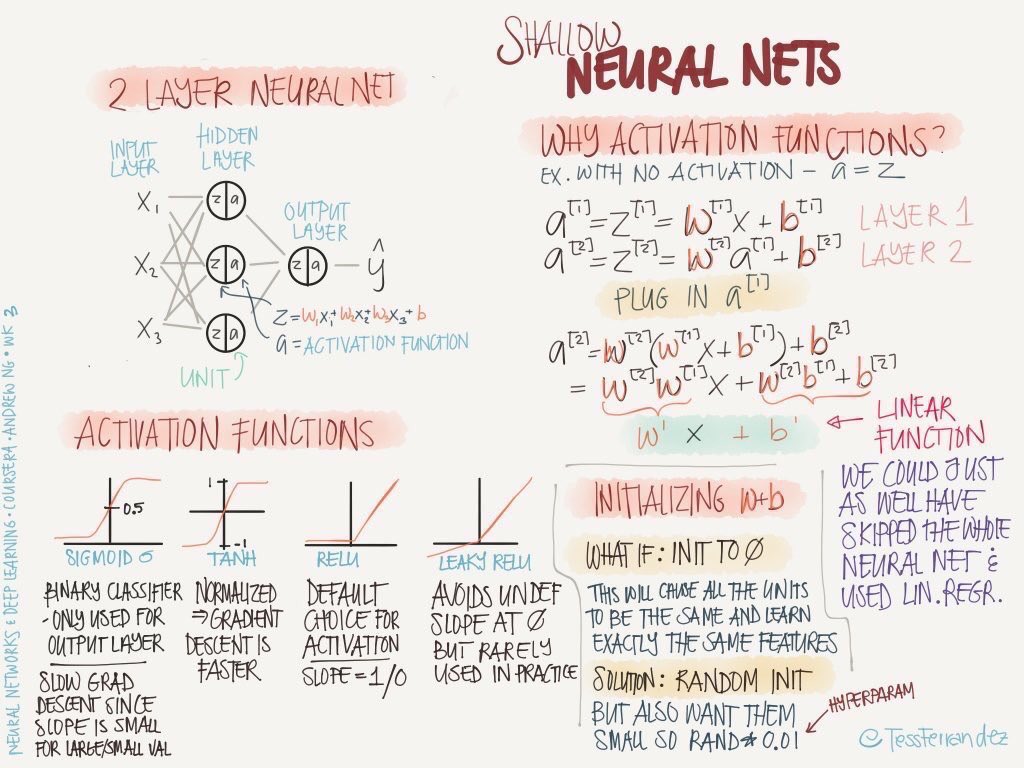 SHALLOW
NEURAL NETS
2 LAYER NEURAL NET
INPUT
LAYER
HIDDEN
LAYER
OUTPUT
LAYER
X₁
X₂
X₃
z|a
z|a
z|a
z|a
ŷ
Z=W₁X₁+W₂X₂+W₃X₃+b
a = ACTIVATION FUNCTION
UNIT
ACTIVATION FUNCTIONS
0.5
SIGMOID σ
BINARY CLASSIFIER
- ONLY USED FOR
OUTPUT LAYER
SLOW GRAD
DESCENT SINCE
SLOPE IS SMALL
FOR LARGE/SMALL VAL
1
-1
TANH
NORMALIZED
⇒ GRADIENT
DESCENT IS
FASTER
RELU
DEFAULT
CHOICE FOR
ACTIVATION
SLOPE = 1/0
LEAKY RELU
AVOIDS UNDEF
SLOPE AT Ø
BUT RARELY
USED IN PRACTICE
WHY ACTIVATION FUNCTIONS?
EX. WITH NO ACTIVATION - a = Z
a[1] = Z[1] = W[1]X + b[1] LAYER 1
a[2] = Z[2] = W[2]a[1] + b[2] LAYER 2
PLUG IN a[1]
a[2] = W[2](W[1]X + b[1]) + b[2]
= W[2]W[1]X + W[2]b[1] + b[2]
W' X + b'
LINEAR
FUNCTION
WE COULD JUST
AS WELL HAVE
SKIPPED THE WHOLE
NEURAL NET &
USED LIN. REGR.
INITIALIZING W+b
WHAT IF: INIT TO Ø
THIS WILL CAUSE ALL THE UNITS
TO BE THE SAME AND LEARN
EXACTLY THE SAME FEATURES
SOLUTION: RANDOM INIT
BUT ALSO WANT THEM
SMALL SO RAND * 0.01
HYPERPARAM
@TessFerrandez
NEURAL NETWORKS & DEEP LEARNING • COURSERA • ANDREW NG • WK 3